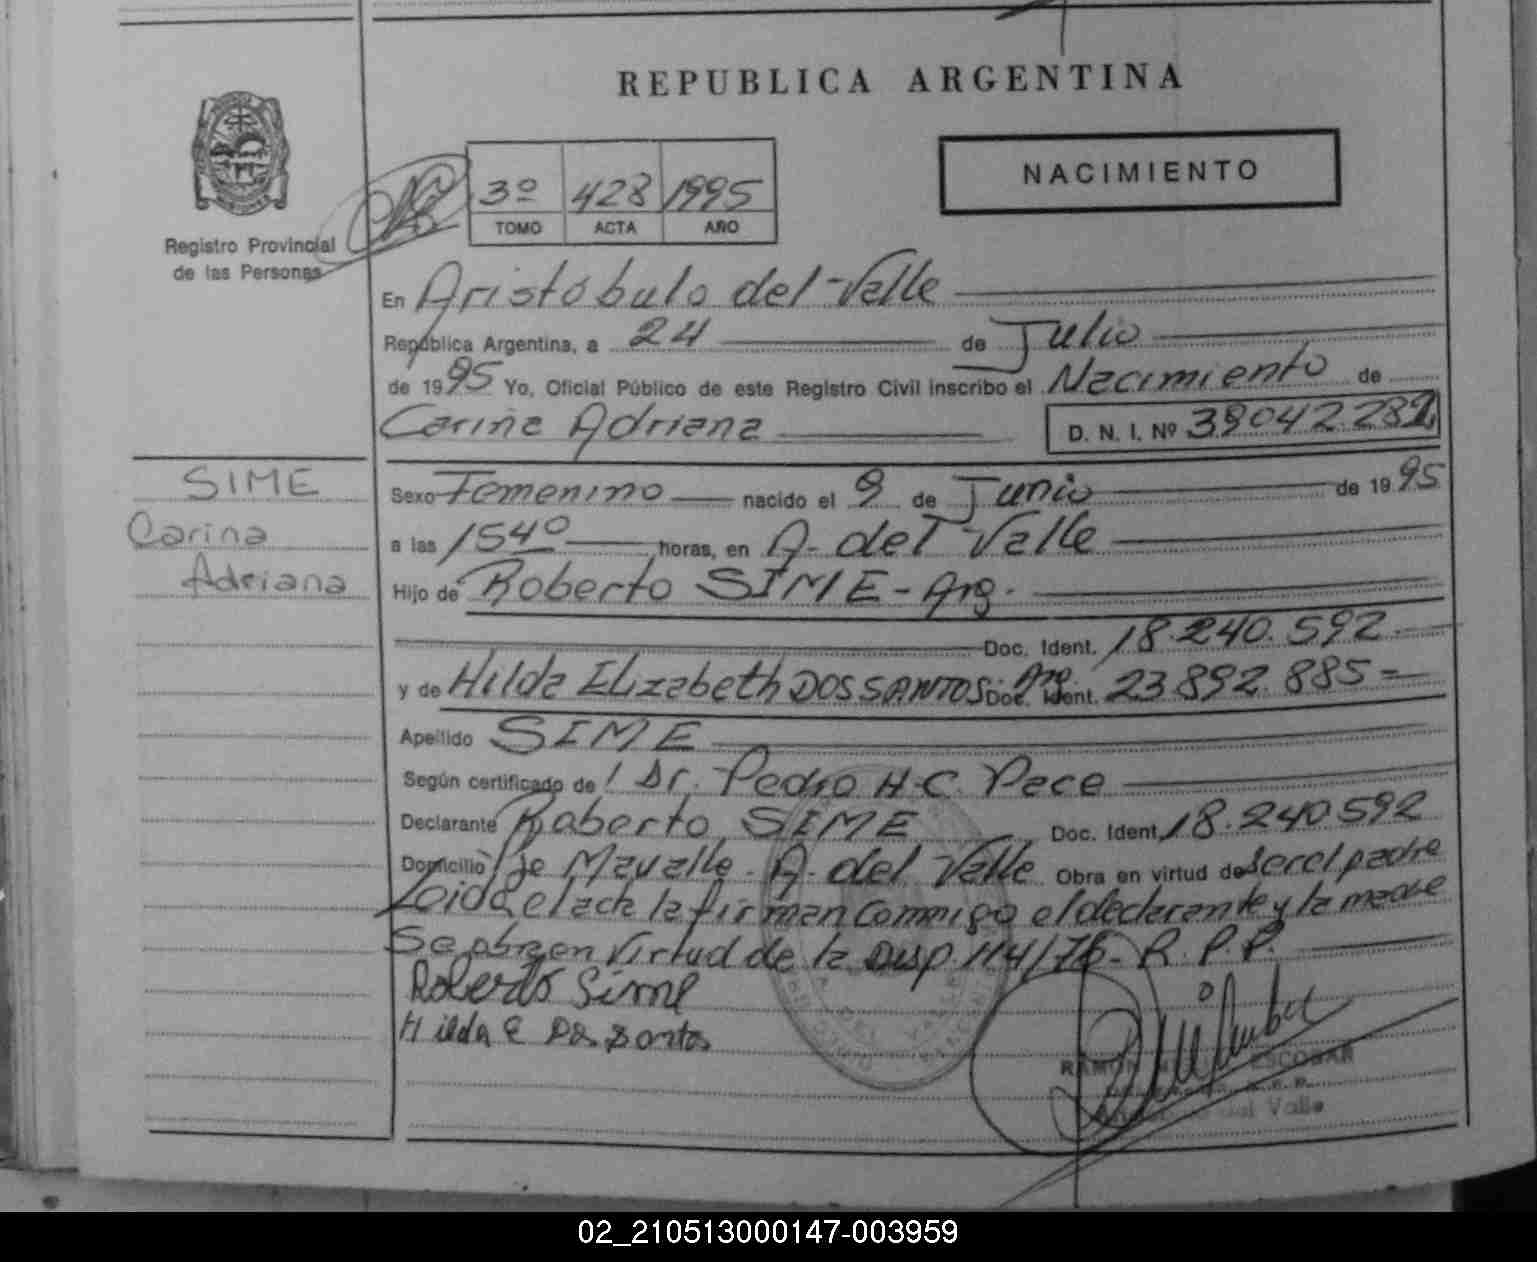 REPUBLICA ARGENTINA
NACIMIENTO
3º 428 1995
TOMO ACTA AÑO
Registro Provincial
de las Personas
En Aristóbulo del Valle
República Argentina, a 24 de Julio
de 1995 Yo, Oficial Público de este Registro Civil inscribo el Nacimiento de
Carina Adriana D. N. I. Nº 39042.282
SIME
Carina
Adriana
Sexo Femenino nacido el 9 de Junio de 1995
a las 1540 horas, en A. del Valle
Hijo de Roberto SIME - Arg.
Doc. Ident. 18.240.592
y de Hilda Elizabeth DOS SANTOS - Arg. Doc. Ident. 23.892.885 =
Apellido SIME
Según certificado de l Dr. Pedro H. C. Pace
Declarante Roberto SIME Doc. Ident. 18.240592
Domicilio Pje Mavalle - A. del Valle Obra en virtud de ser el padre
Leida el acta la firman conmigo el declarante y la madre
Se obra en virtud de la Disp. 114/76 - R. P. P.
Roberto Sime
Hilda E Dos Santos
RAMON ESCOBAR
del Valle
02_210513000147-003959